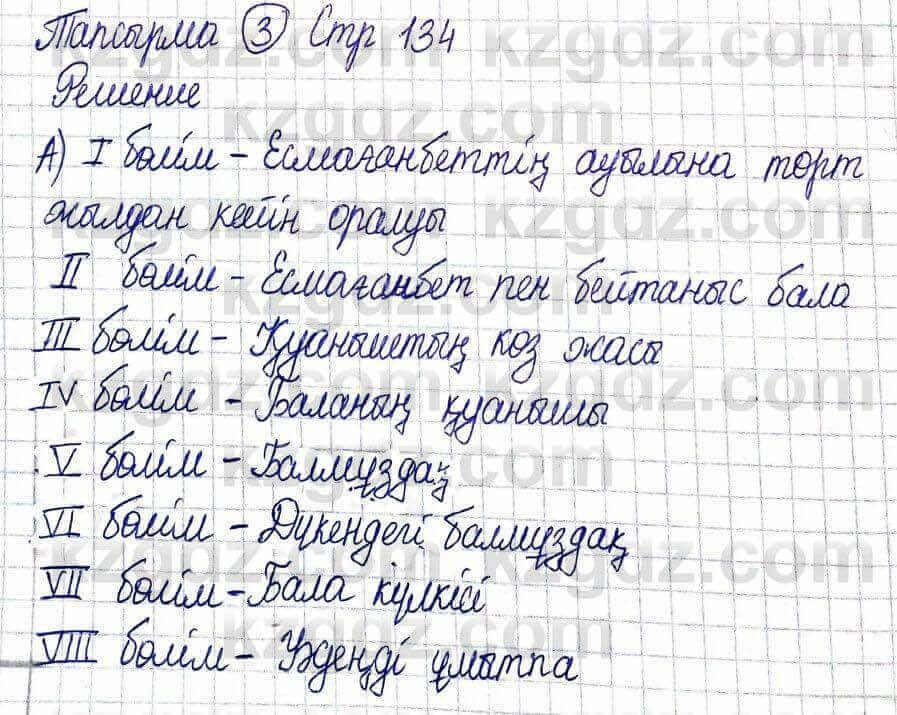 Тапсырма 3 Стр 134
Решение
А) I бөлім - Есмағанбеттің ауылына төрт
жылдан кейін оралуы
II бөлім - Есмағанбет пен бейтаныс бала
III бөлім - Қуаныштың көз жасы
IV бөлім - Баланың қуанышы
V бөлім - Балмұздақ
VI бөлім - Дүкендегі балмұздақ
VII бөлім - Бала күлкісі
VIII бөлім - Уәдеңді ұмытпа
kzgdz.com